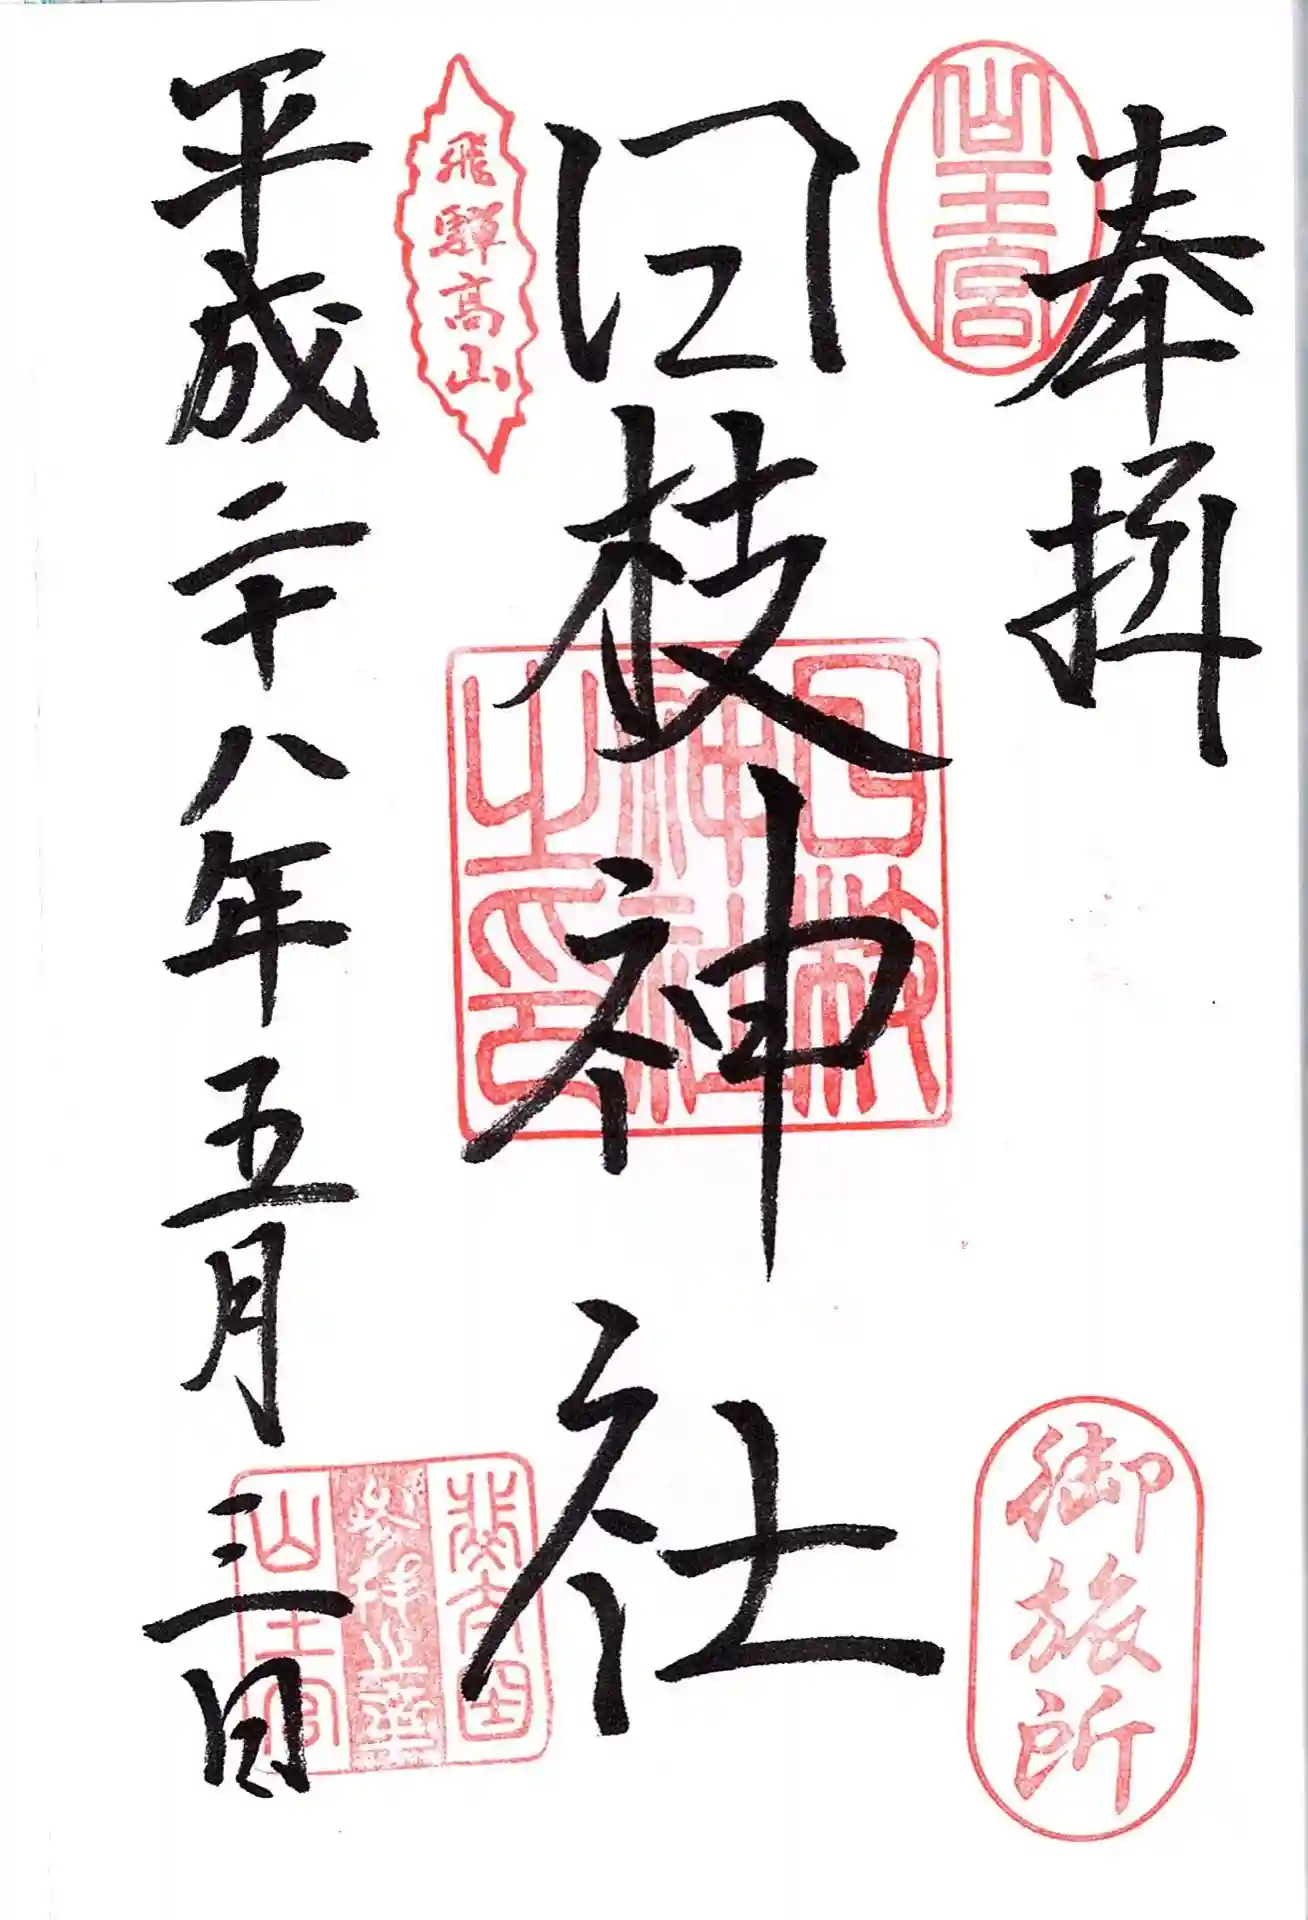 奉拝
山王宮
御旅所
日枝神社
日枝神社之印
飛騨高山
平成二十八年五月三日
参拝之証
山王宮